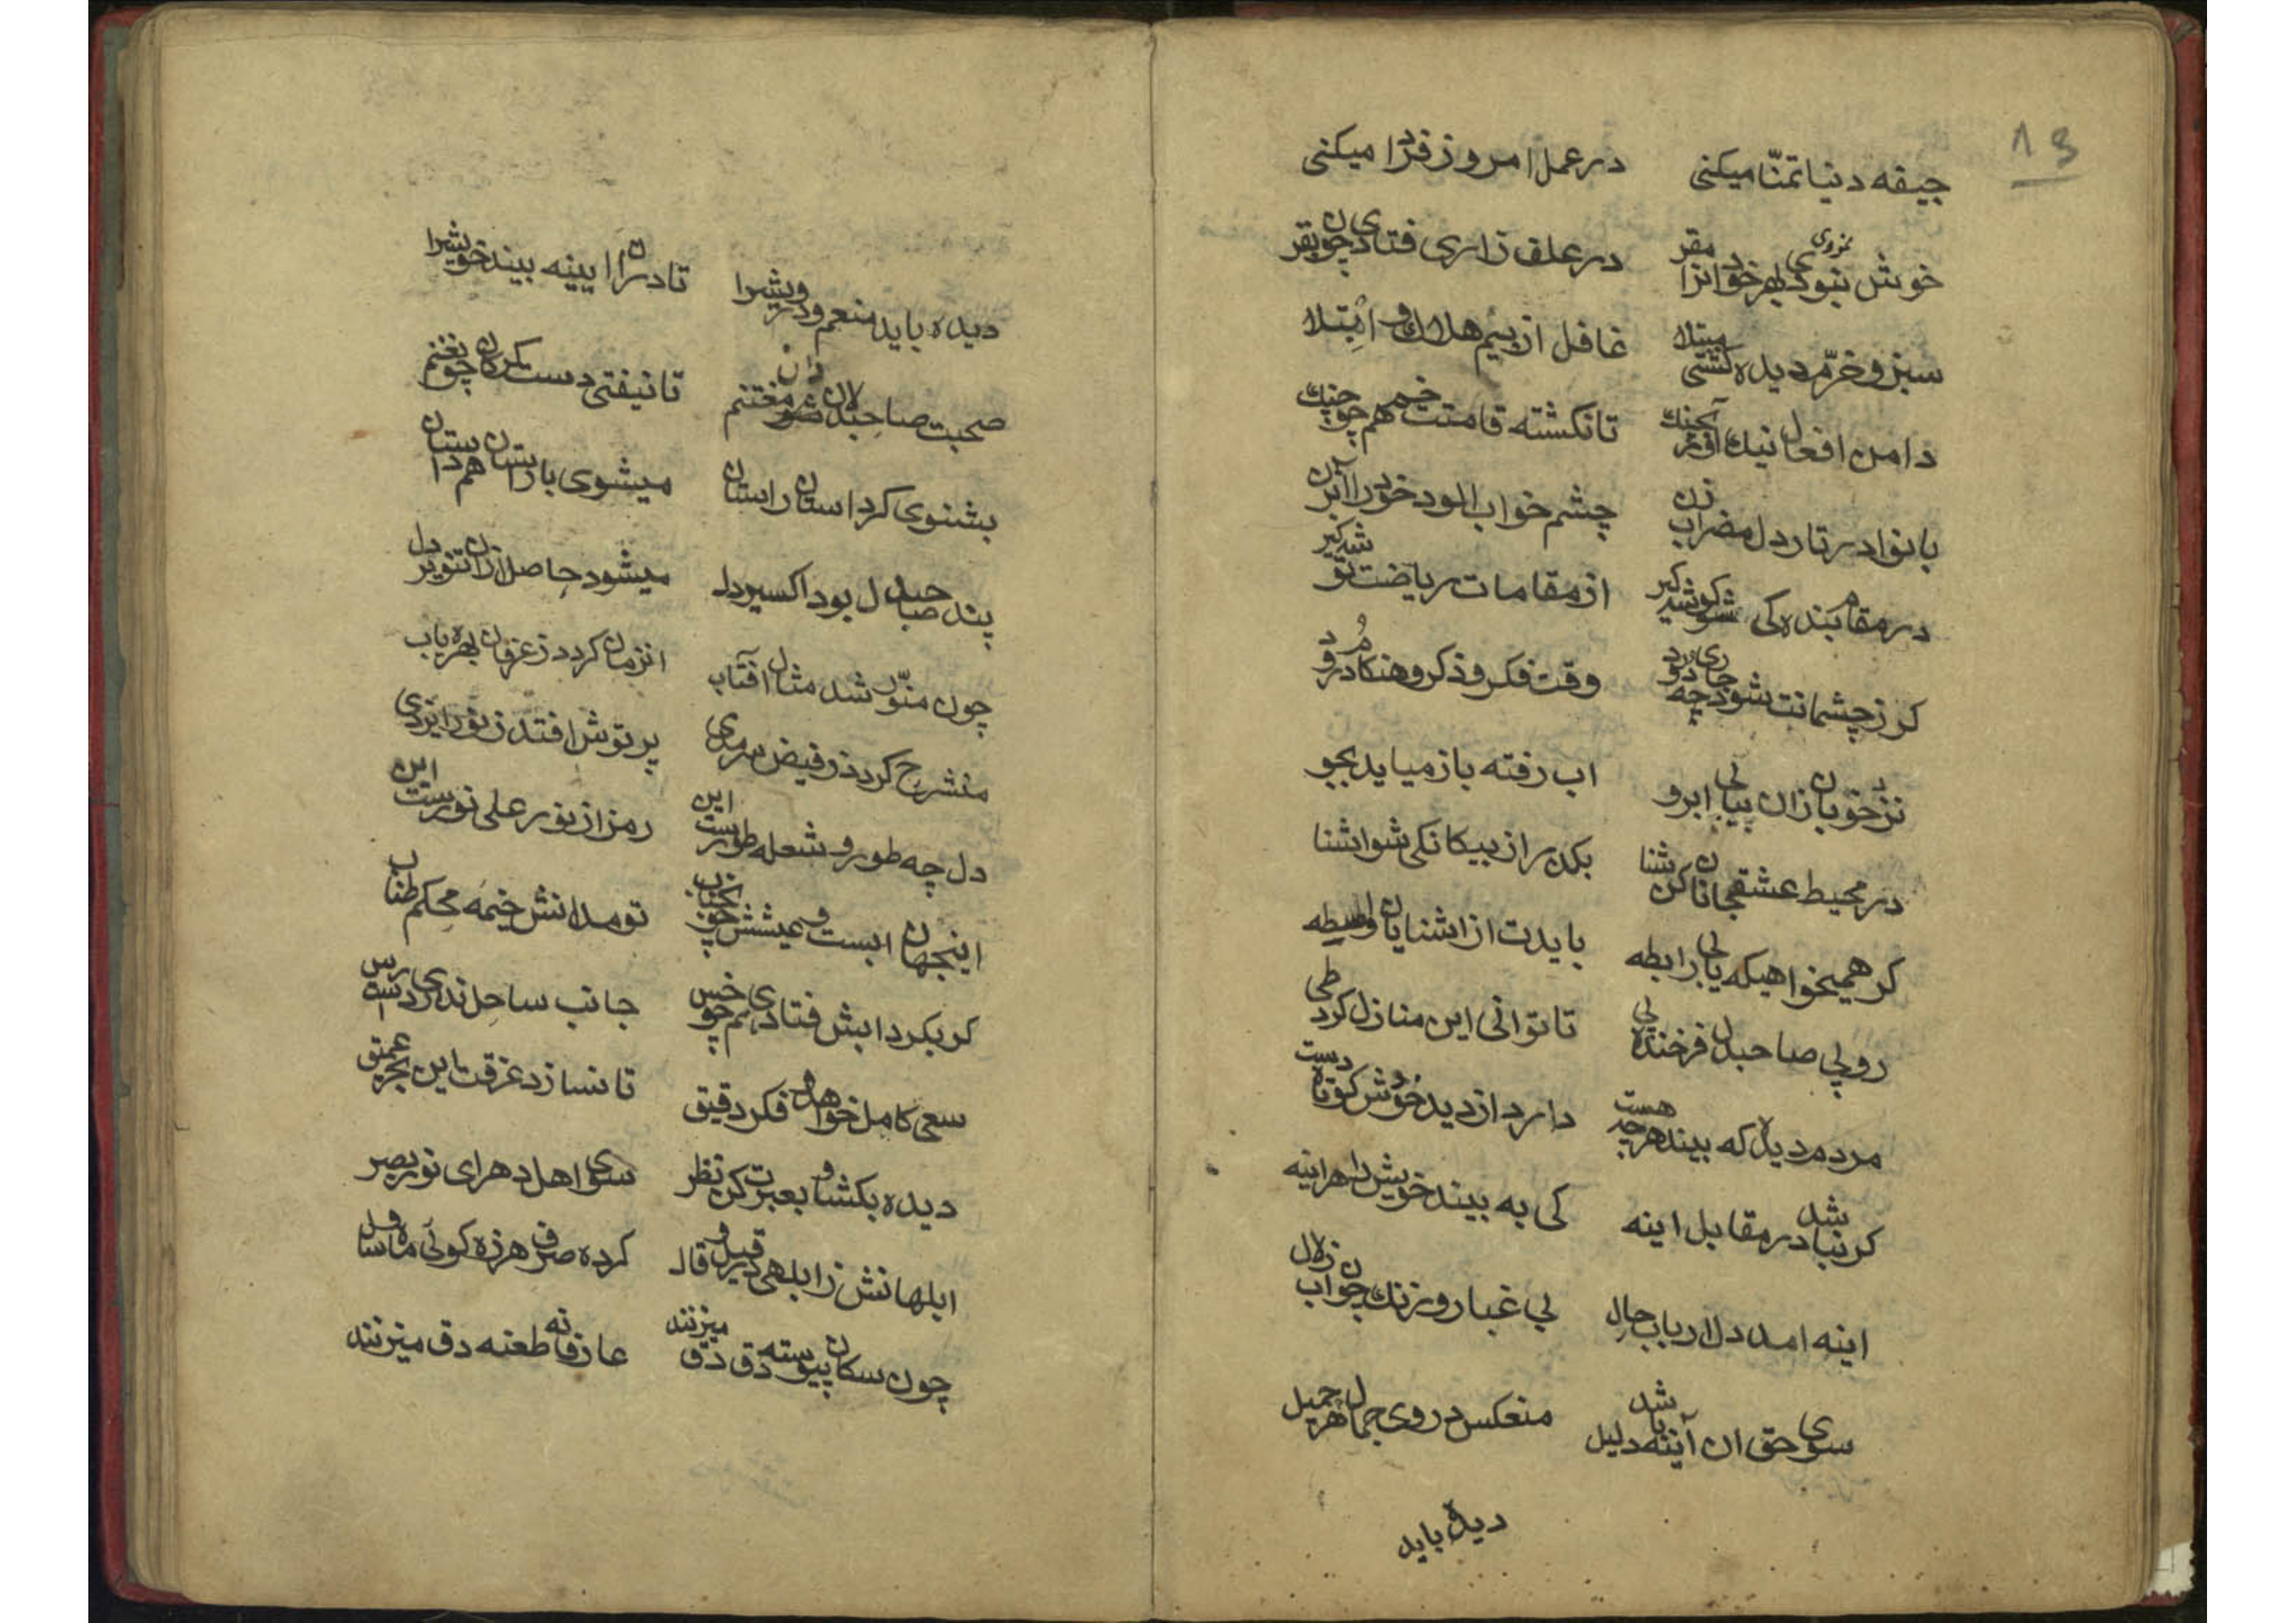 13
جیفه دنیا تمنّا میکنی در عمل امروز فردا میکنی
خوش نبود بهر خود انرا مقر در علف زاری فتادی چون بقر
سبز و خرّم دیده کشتی مبتلا غافل از بیم هلاك و ابتلا
دامن افعال نیك اور بچنك تا نکشته قامتت خم همچو چنك
بانوا در تار دل مضراب زن چشم خواب الود خود را آب زن
در مقام بنده کی شو کوشه کیر از مقامات ریاضت توشه کیر
کر ز چشمانت شود جاری چه رود وقت فکر و ذکر و هنکام درود
نزد خوبان زان بیابی ابرو اب رفته باز میاید بجو
در محیط عشق جانان کن شنا بکذر از بیکانکی شو اشنا
کر همیخواهیکه یابی رابطه بایدت از اشنایان واسطه
رو پی صاحبدل فرخنده پی تا توانی این منازل کرد طی
مردم دیده که بیند هر چه هست دارد از دید خودش کوتاه دست
کر نباشد در مقابل اینه کی به بیند خویش را هر اینه
اینه امد دل ارباب حال بی غبار و زنك چون اب زلال
سوی حق ان آینه باشد دلیل منعکس در وی جمال هر جمیل
دیده باید
دیده باید منعم و درویشرا تا دران ایینه بیند خویشرا
صحبت صاحبدلان شو مغتنم تا نیفتی دست کرکان چون غنم
بشنوی کر داستان راستان میشوی با راستان همداستان
پند صاحبدل بود اکسیر دل میشود حاصل ازان تنویر دل
چون منوّر شد مثال افتاب انزمان کردد ز عرفان بهره یاب
منشرح کردد ز فیض سرمدی پرتوش افتد ز نور ایزدی
دل چه طور و شعله طورست این رمز از نور علی نورست این
اینجهان ابست و عیشش چون حباب تو مدانش خیمه محکم طناب
کر بکردابش فتادی همچو خس جانب ساحل نداری دست رس
سعی کامل خواهد و فکر دقیق تا نسازد غرقت این بحر عمیق
دیده بکشا و بعبرت کن نظر سوی اهل دهر ای نور بصر
ابلهانش ز ابلهی در قیل و قال کرده صرف هرزه کوئی ماه و سال
چون سکان پیوسته دق دق میزنند عارفانه طعنه دق میزنند